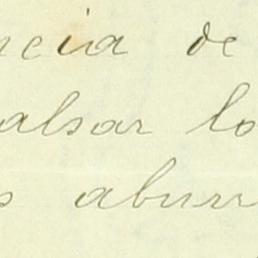 ncia de
alsar lo
s aburr